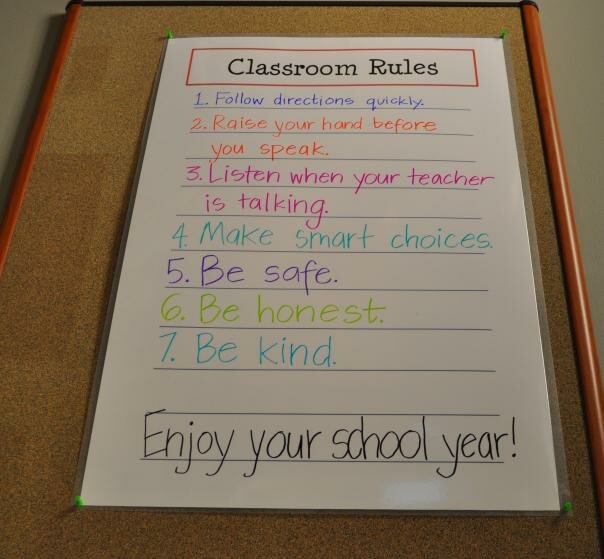 Classroom Rules
1. Follow directions quickly.
2. Raise your hand before
you speak.
3. Listen when your teacher
is talking.
4. Make smart choices.
5. Be safe.
6. Be honest.
7. Be kind.
Enjoy your school year!